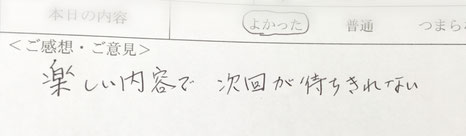 本日の内容 よかった 普通 つまら
<ご感想・ご意見>
楽しい内容で 次回が待ちきれない